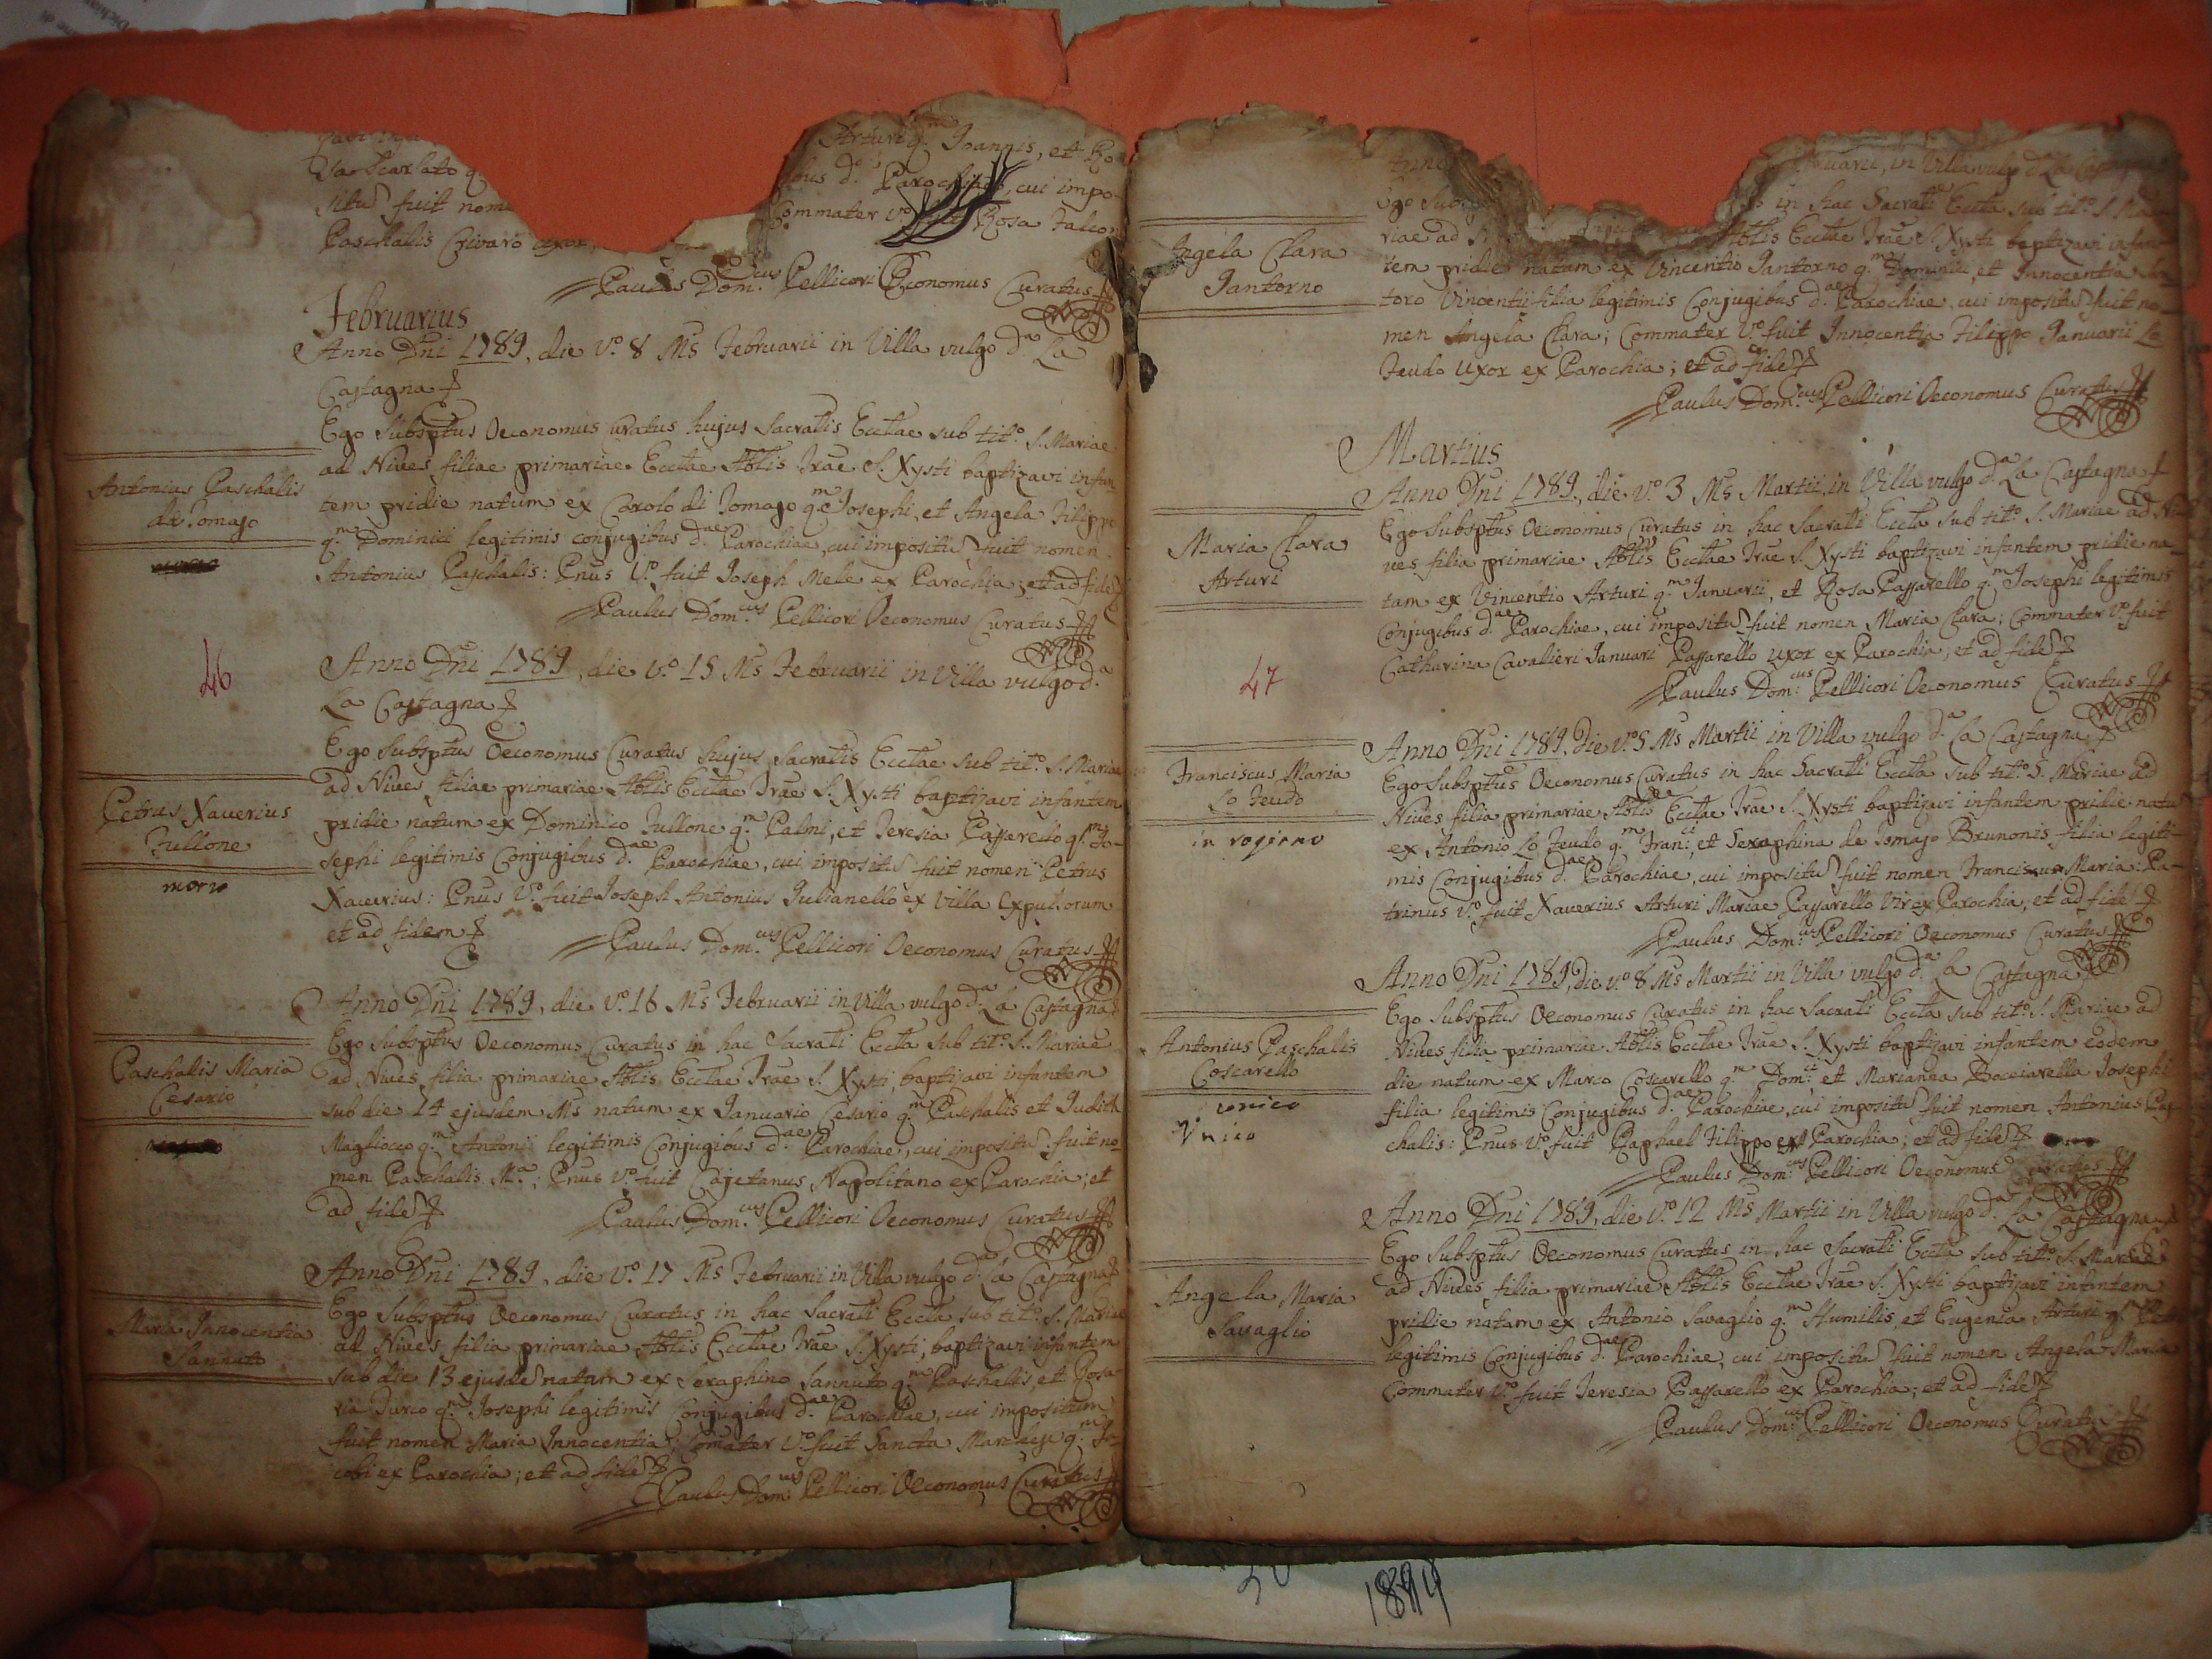 Arturi q.m Joannis, et Ro-
sa Scarlato q
d.ae Parochiae, cui impo-
situ fuit nome
Commater v.o fuit Rosa Falcon
Paschalis Chivaro uxor
Paulus Dom.cus Pellicori Œconomus Curatus
Februarius
Anno Dni 1789, die v.o 8 Ms Februarii in Villa vulgo d.a La
Castagna
Ego Subsptus Oeconomus Curatus hujus Sacratis Ecctae sub tit.o S. Mariae
ad Nives filiae primariae Ecctae Abtis Irae S. Xysti baptizavi infan-
Antonius Paschalis
di Tomaso
tem pridie natum ex Carolo di Tomaso q.m Josephi, et Angela Filippo
q.m Dominici legitimis conjugibus d.ae Parochiae, cui impositu fuit nomen
Antonius Paschalis: Pnus v.o fuit Joseph Mele ex Parochia; et ad fide
Paulus Dom.cus Pellicori Oeconomus Curatus
46
Anno Dni 1789, die v.o 15 Ms Februarii in Villa vulgo d.a
La Castagna
Ego Subsptus Oeconomus Curatus hujus Sacratis Ecctae sub tit.o S. Mariae
ad Nives filiae primariae Abtis Ecctae Irae S. Xysti baptizavi infantem
Petrus Xaverius
Fullone
morto
pridie natum ex Dominico Fullone q.m Palmi, et Teresia Passarello q.m Jo-
sephi legitimis Conjugibus d.ae Parochiae, cui impositu fuit nomen Petrus
Xaverius: Pnus v.o fuit Joseph Antonius Julianello ex Villa Expulsorum
et ad fidem
Paulus Dom.cus Pellicori Oeconomus Curatus
Anno Dni 1789, die v.o 16 Ms Februarii in Villa vulgo d.a La Castagna
Ego Subsptus Oeconomus Curatus in hac Sacrati Eccta sub tit.o S. Mariae
Paschalis Maria
Cesario
ad Nives filia primariae Abtis Ecctae Irae S. Xysti baptizavi infantem
sub die 14 ejusdem Ms natum ex Januario Cesario q.m Paschalis et Judith
Magliocco q.m Antonii legitimis Conjugibus d.ae Parochiae, cui impositu fuit no-
men Paschalis M.a; Pnus v.o fuit Cajetanus Napolitano ex Parochia; et
ad fide
Paulus Dom.cus Pellicori Oeconomus Curatus
Anno Dni 1789, die v.o 17 Ms Februarii in Villa vulgo d.a La Castagna
Ego Subsptus Oeconomus Curatus in hac Sacrati Eccta sub tit.o S. Mariae
Maria Innocentia
Sannuto
ad Nives filia primariae Abtis Ecctae Irae S. Xysti, baptizavi infantem
sub die 13 ejusde natam ex Seraphino Sannuto q.m Paschalis, et Rosa
ria Turco q.m Josephi legitimis Conjugibus d.ae Parochiae, cui impositum
fuit nomen Maria Innocentia, Comater v.o fuit Sancta Marchese q.m Ja-
cobi ex Parochia; et ad fide
Paulus Dom.cus Pellicori Oeconomus Curatus
Anno
in Villa vulgo d.a La Castagna
Ego Sub
in hac Sacrati Eccta sub tit.o S. Ma-
riae ad
Abtis Ecctae Irae S. Xysti baptizavi infan-
Angela Clara
Santorno
tem pridie natam ex Vincentio Santorno q.m Dominici, et Innocentia
toro Vincentii filia legitimis Conjugibus d.ae Parochiae, cui impositu fuit no-
men Angela Clara; Commater v.o fuit Innocentia Filippo Januarii Lo
Feudo uxor ex Parochia; et ad fide
Paulus Dom.cus Pellicori Oeconomus Curatus
Martius
Anno Dni 1789, die v.o 3 Ms Martii in Villa vulgo d.a La Castagna
Ego Subsptus Oeconomus Curatus in hac Sacrati Eccta sub tit.o S. Mariae ad Ni-
Maria Clara
Arturi
ves filia primariae Abtis Ecctae Irae S. Xysti baptizavi infantem pridie na-
tam ex Vincentio Arturi q.m Januarii, et Rosa Passarello q.m Josephi legitimis
Conjugibus d.ae Parochiae, cui impositu fuit nomen Maria Clara; Commater v.o fuit
Catharina Cavalieri Januari Passarello uxor ex Parochia; et ad fide
Paulus Dom.cus Pellicori Oeconomus Curatus
47
Anno Dni 1789, die v.o 5 Ms Martii in Villa vulgo d.a La Castagna
Ego Subsptus Oeconomus Curatus in hac Sacrati Eccta sub tit.o S. Mariae ad
Franciscus Maria
Lo Feudo
in rogirno
Nives filia primariae Abtis Ecctae Irae S. Xysti baptizavi infantem pridie natu
ex Antonio Lo Feudo q.m Fran.ci, et Seraphina de Tomaso Brunonis filia legiti-
mis Conjugibus d.ae Parochiae, cui impositu fuit nomen Franciscus Maria: Pa-
trinus v.o fuit Xaverius Arturi Mariae Passarello Vir ex Parochia, et ad fide
Paulus Dom.cus Pellicori Oeconomus Curatus
Anno Dni 1789, die v.o 8 Ms Martii in Villa vulgo d.a La Castagna
Ego Subsptus Oeconomus Curatus in hac Sacrati Eccta sub tit.o S. Mariae ad
Antonius Paschalis
Coscarello
unico
Unico
Nives filia primariae Abtis Ecctae Irae S. Xysti baptizavi infantem eodem
die natum ex Marco Coscarello q.m Dom.ci et Marianna Bocciarella Josephi
filia legitimis Conjugibus d.ae Parochiae, cui impositu fuit nomen Antonius Pas
chalis: Pnus v.o fuit Raphael Filippo ex Parochia; et ad fide
Paulus Dom.cus Pellicori Oeconomus Curatus
Anno Dni 1789, die v.o 12 Ms Martii in Villa vulgo d.a La Castagna
Ego Subsptus Oeconomus Curatus in hac Sacrati Eccta sub tit.o S. Mariae
Angela Maria
Savaglio
ad Nives filia primariae Abtis Ecctae Irae S. Xysti baptizavi infantem
pridie natam ex Antonio Savaglio q.m Humilis, et Eugenia Arturi q.m
legitimis Conjugibus d.ae Parochiae, cui impositu fuit nomen Angela Maria
Commater v.o fuit Teresia Passarello ex Parochia; et ad fide
Paulus Dom.cus Pellicori Oeconomus Curatus